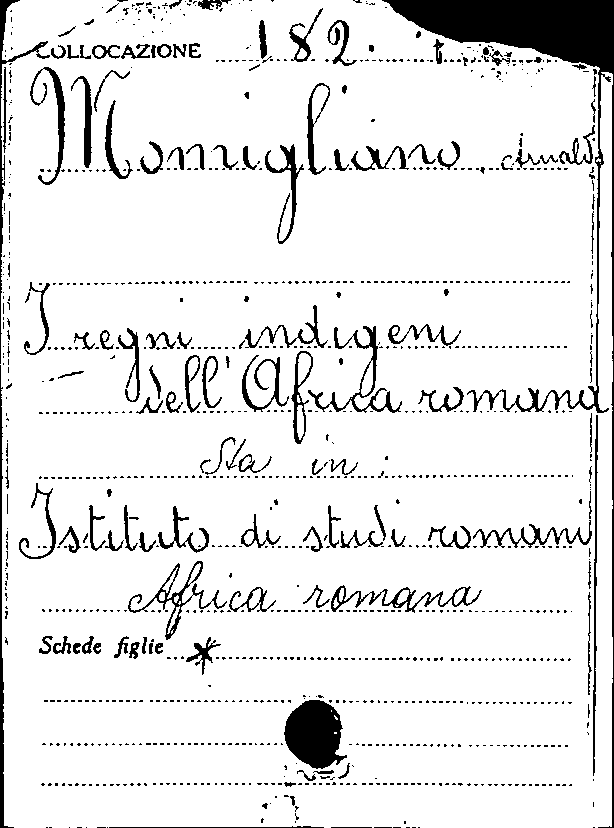 COLLOCAZIONE 182.
Momigliano, Arnaldo
I regni indigeni
dell'Africa romana
Sta in:
Istituto di studi romani
Africa romana
Schede figlie *